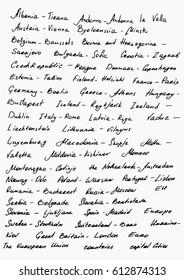 Albania - Tirana Andorra - Andorra la Vella
Austria - Vienna Byelorussia - Minsk
Belgium - Brussels Bosnia and Herzegovina -
Sarajevo Bulgaria - Sofia Croatia - Zagreb
Czech Republic - Prague Denmark - Copenhagen
Estonia - Talinn Finland - Helsinki France - Paris
Germany - Berlin Greece - Athens Hungary -
Budapest Iceland - Reykjavik Ireland -
Dublin Italy - Rome Latvia - Riga Vaduz -
Liechtenstein Lithuania - Vilnyus
Luxemburg Macedonia - Skopje Malta -
Valetta Moldova - Kishinev Monaco
Montenegro - Cetinje the Netherlands - Amsterdam
Norway - Oslo Poland - Warsaw Portugal - Lisbon
Romania - Bucharest Russia - Moscow EU
Serbia - Belgrade Slovakia - Bratislava
Slovenia - Ljubljana Spain - Madrid Europe
Sweden - Stockholm Switzerland - Bern Ukraine -
Kiev Great Britain - London Euro
The European Union countries capital cities
shutterstock
IMAGE ID: 612874313
www.shutterstock.com